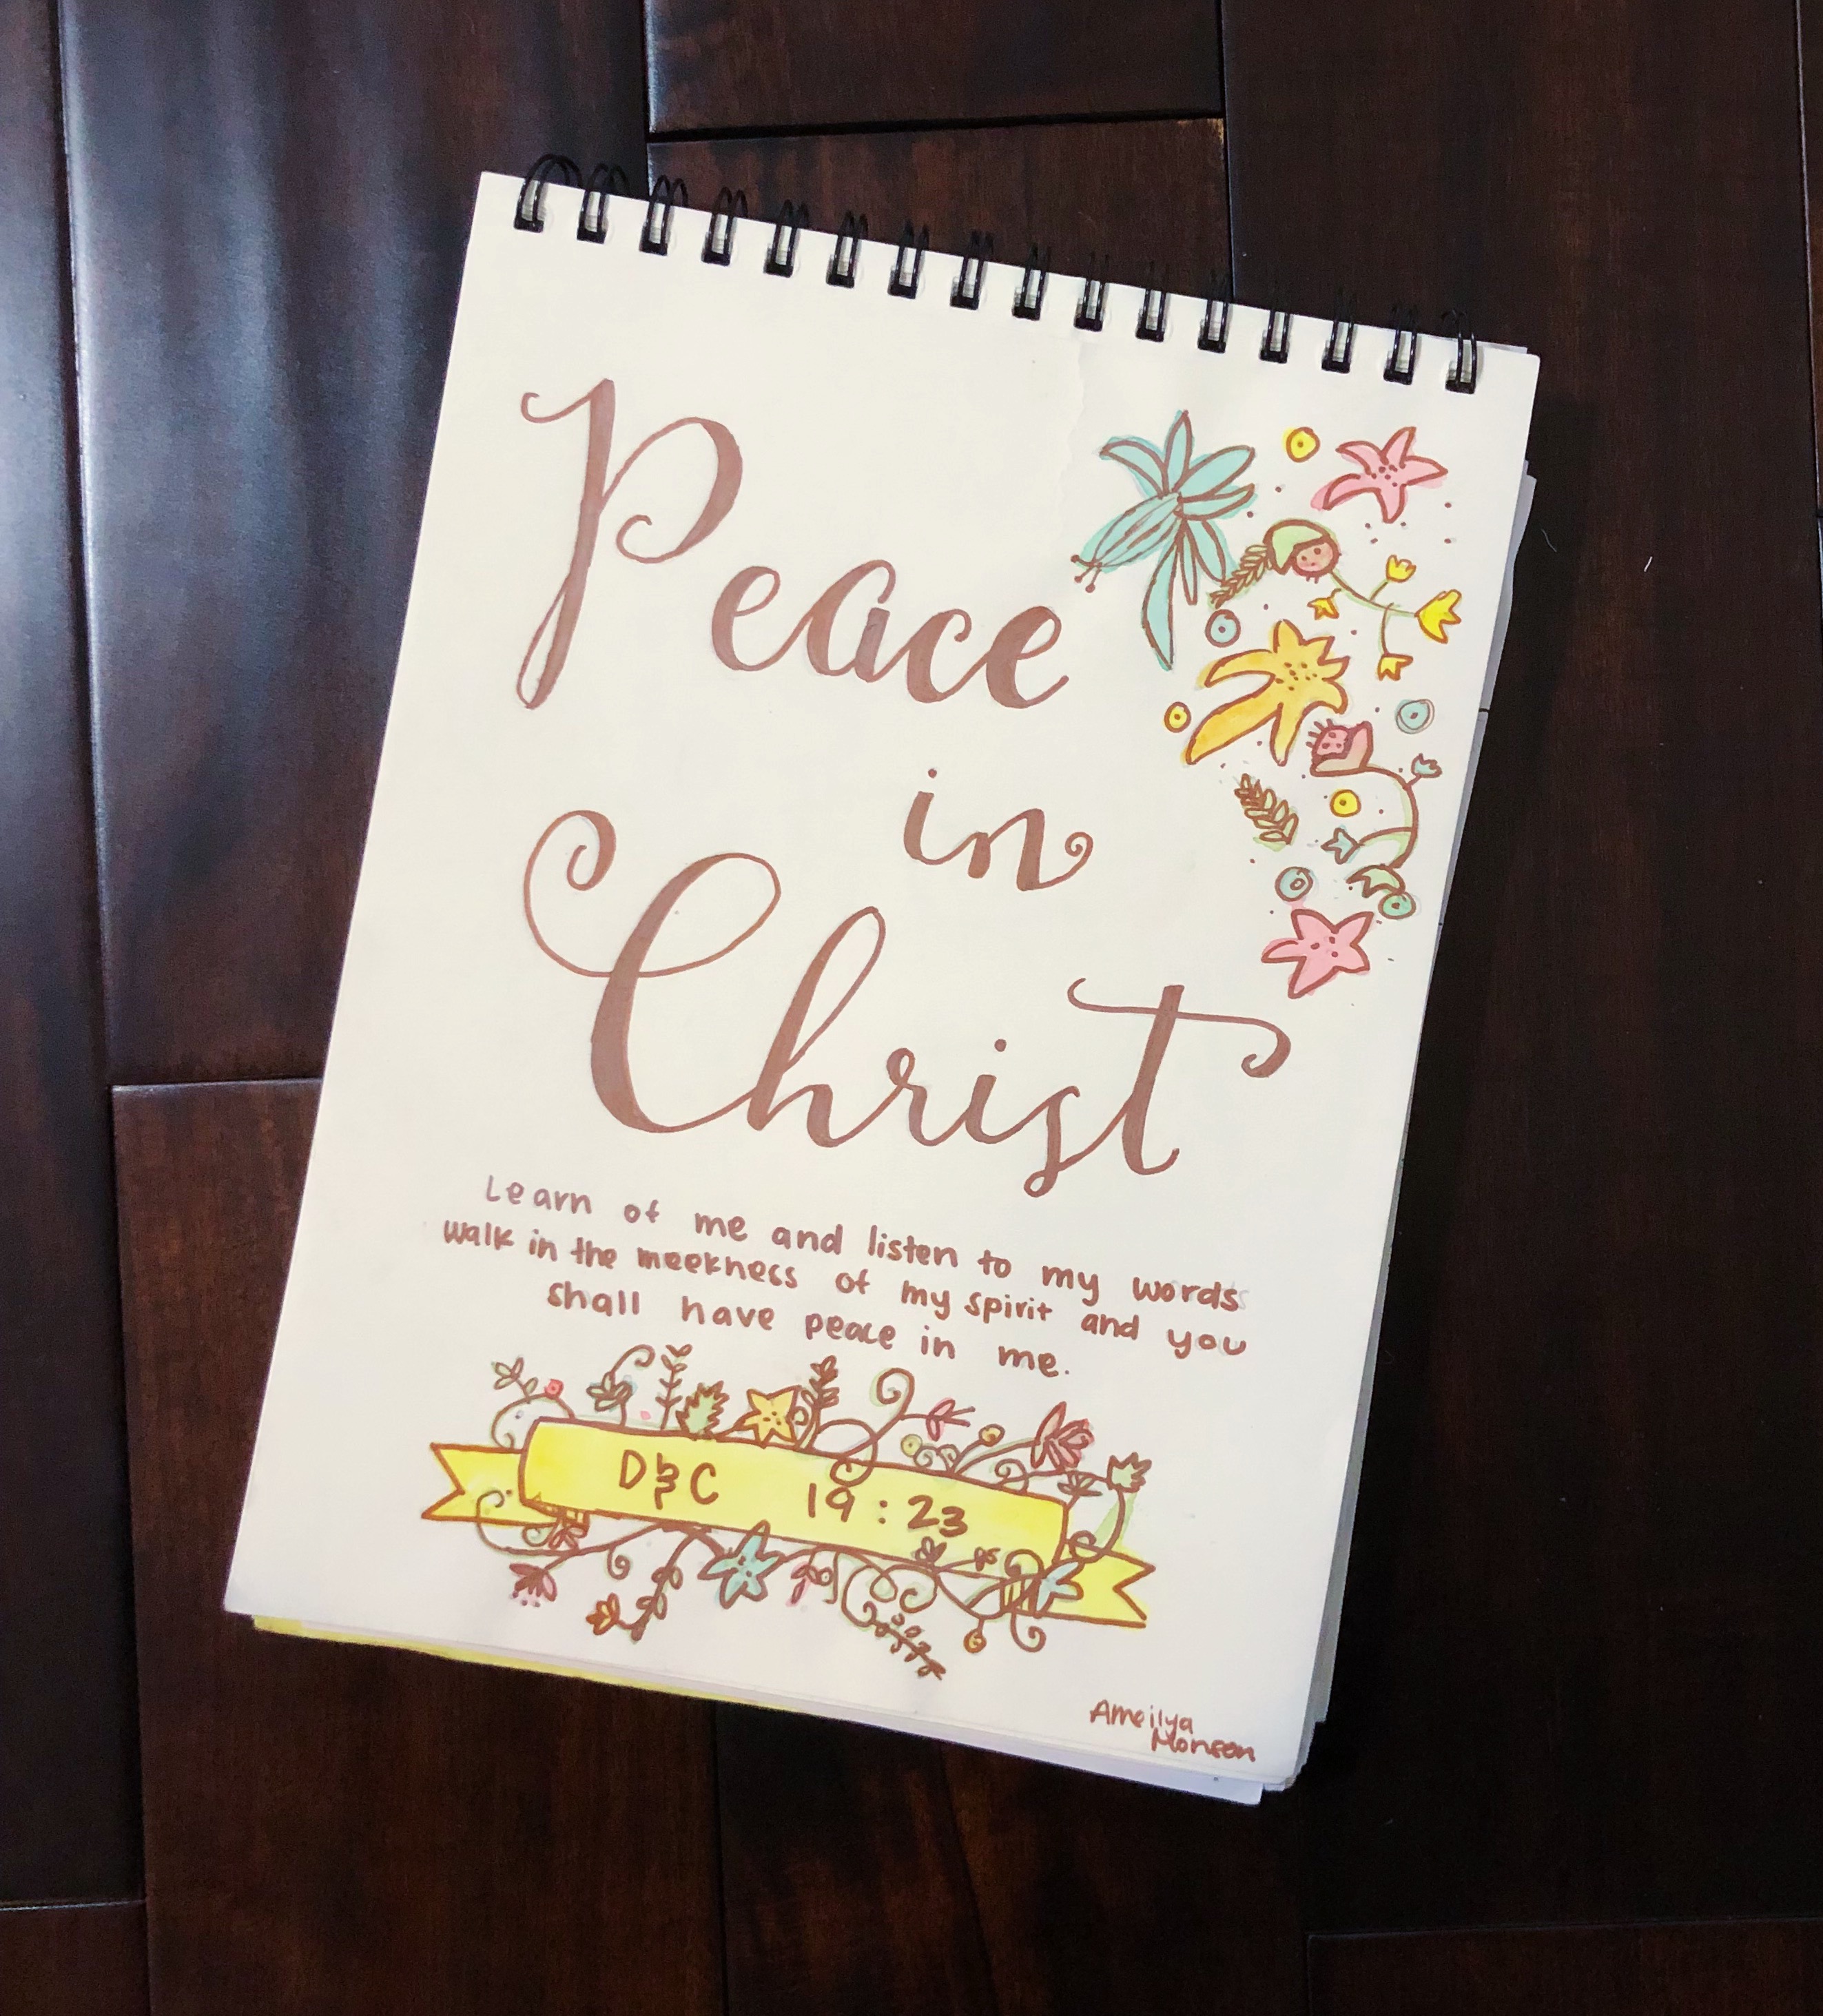 Peace
in
Christ
Learn of me and listen to my words
walk in the meekness of my spirit and you
shall have peace in me.
D&C 19:23
Ameilya
Monson